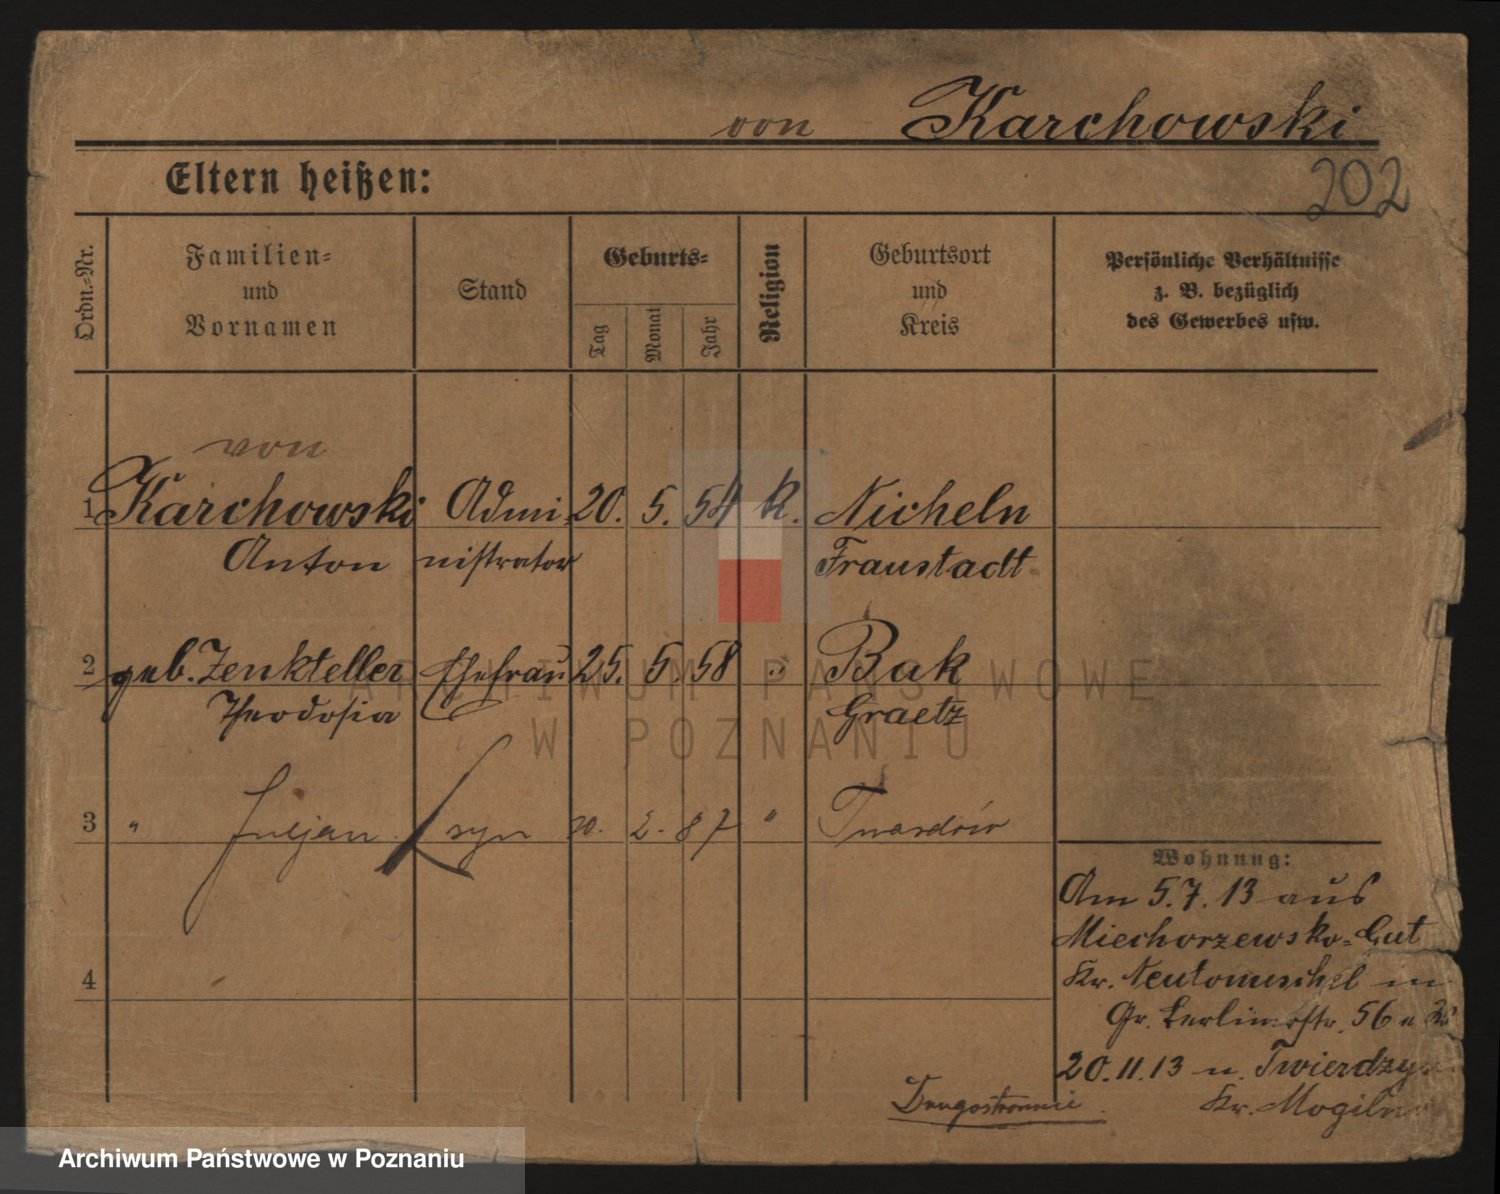 von Karchowski
Eltern heißen:
202
Ordn.-Nr.
Familien-
und
Vornamen
Stand
Geburts-
Tag
Monat
Jahr
Religion
Geburtsort
und
Kreis
Persönliche Verhältnisse
z. B. bezüglich
des Gewerbes usw.
von
1 Karchowski Admi- 20. 5. 54 K. Nicheln
Anton nistrator Fraustadt
2 geb. Zenkteller Ehefrau 25. 5. 58 " Bak
Theodosia Graetz
3 " Juljan syn 20. 2. 87 " Twardów
4
Wohnung:
Am 5.7.13 aus
Miechorzewsko-Gut
Kr. Neutomischel in
Gr. Berlinerstr. 56 a
20.11.13 n. Twierdzyn
Kr. Mogilno
Drugostronnie
ARCHIWUM PAŃSTWOWE
W POZNANIU
Archiwum Państwowe w Poznaniu